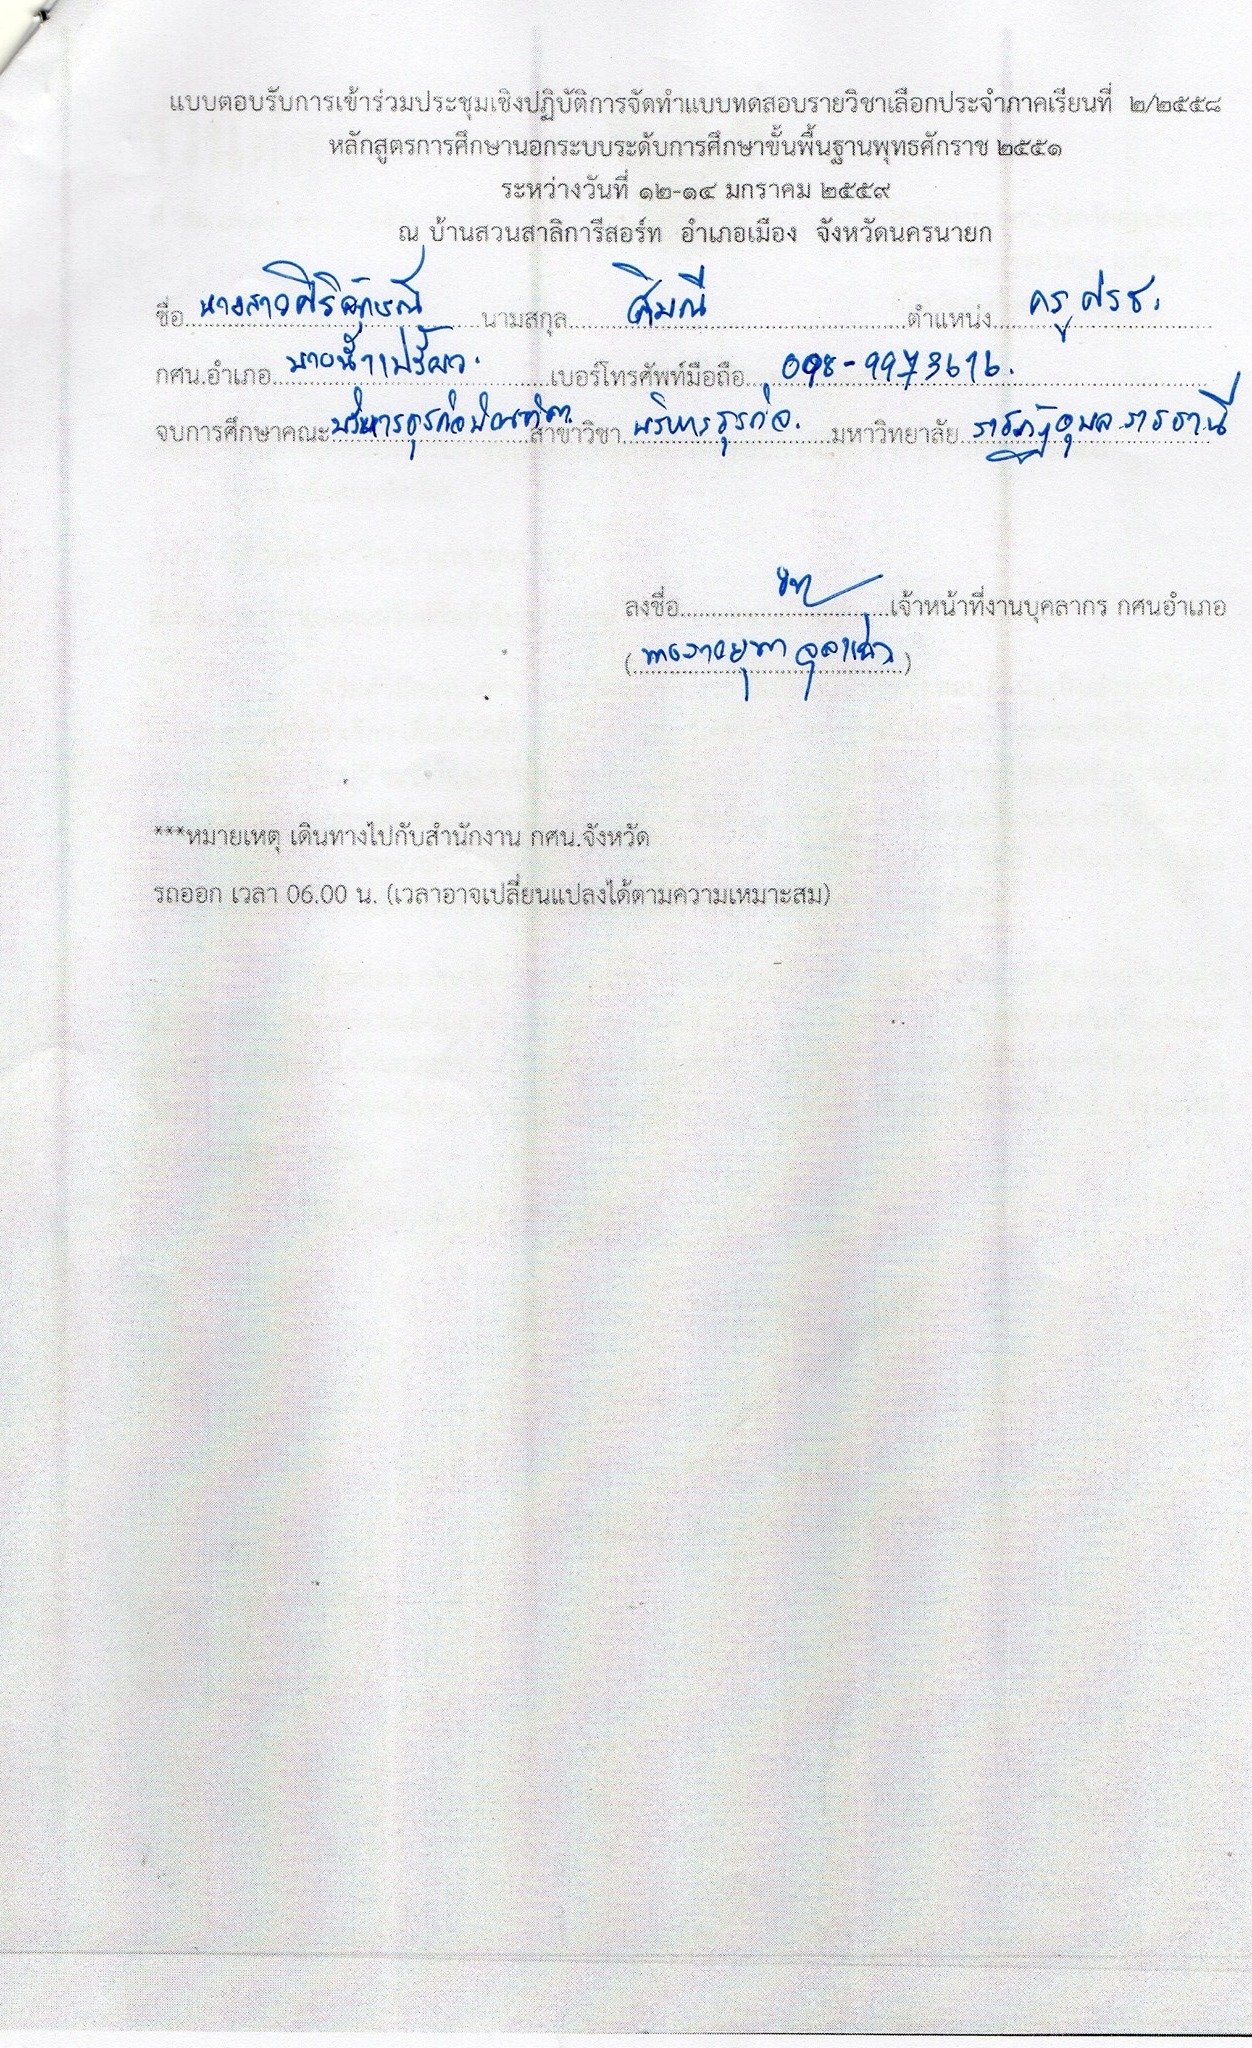 แบบตอบรับการเข้าร่วมประชุมเชิงปฏิบัติการจัดทำแบบทดสอบรายวิชาเลือกประจำภาคเรียนที่ ๒/๒๕๕๘
หลักสูตรการศึกษานอกระบบระดับการศึกษาขั้นพื้นฐานพุทธศักราช ๒๕๕๑
ระหว่างวันที่ ๑๒-๑๔ มกราคม ๒๕๕๙
ณ บ้านสวนสาลิการีสอร์ท อำเภอเมือง จังหวัดนครนายก
ชื่อ นางสาวศิริลักษณ์ นามสกุล ศิมณี ตำแหน่ง ครู ศรช.
กศน.อำเภอ บางน้ำเปรี้ยว. เบอร์โทรศัพท์มือถือ 098-9973616.
จบการศึกษาคณะ บริหารธุรกิจบัณฑิต. สาขาวิชา บริหารธุรกิจ. มหาวิทยาลัย ราชภัฏอุบลราชธานี
ลงชื่อ เจ้าหน้าที่งานบุคลากร กศนอำเภอ
( )
***หมายเหตุ เดินทางไปกับสำนักงาน กศน.จังหวัด
รถออก เวลา 06.00 น. (เวลาอาจเปลี่ยนแปลงได้ตามความเหมาะสม)